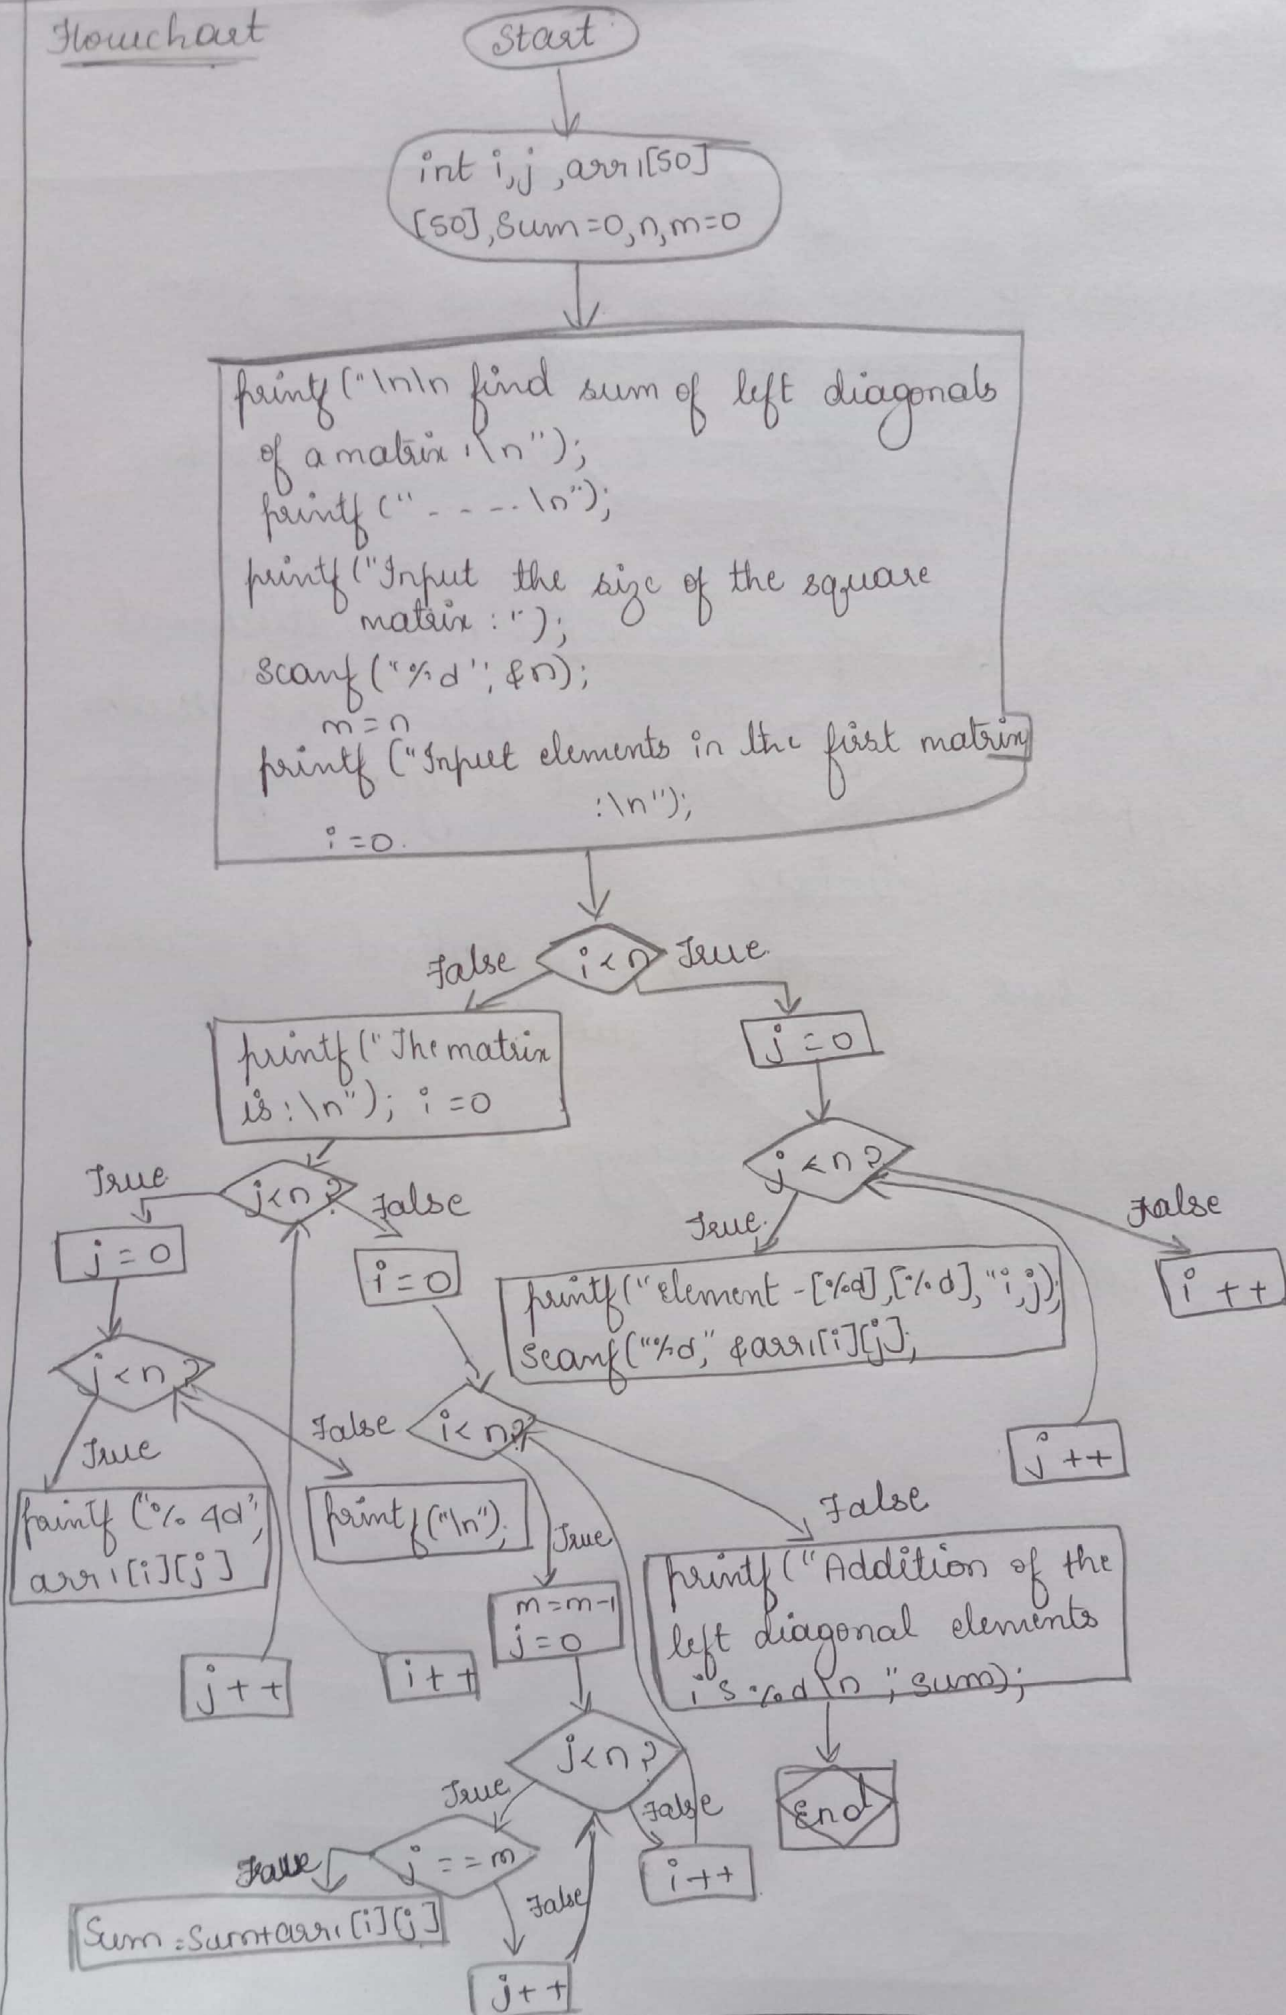 Flowchart
Start
int i,j ,arr1[50]
[50],Sum=0,n,m=0
printf("\n\n find sum of left diagonals
of a matrix :\n");
printf("- - - -. \n");
printf("Input the size of the square
matrix : ");
scanf("%d", &n);
m=n
printf ("Input elements in the first matrix
:\n");
i=0.
False
i<n
True
printf("The matrix
is:\n"); i=0
j=0
True
j<n?
False
j<n?
True
False
j=0
i=0
printf("element -[%d],[%d],"i,j);
scanf("%d," &arr1[i][j];
i++
j<n?
True
False
i<n?
j++
False
printf ("% 4d",
arr1[i][j]
printf("\n");
True
m=m-1
j=0
printf("Addition of the
left diagonal elements
is %d\n ",sum);
j++
i++
j<n?
True
False
End
j==m
False
i++
Sum=Sum+arr1[i][j]
j++